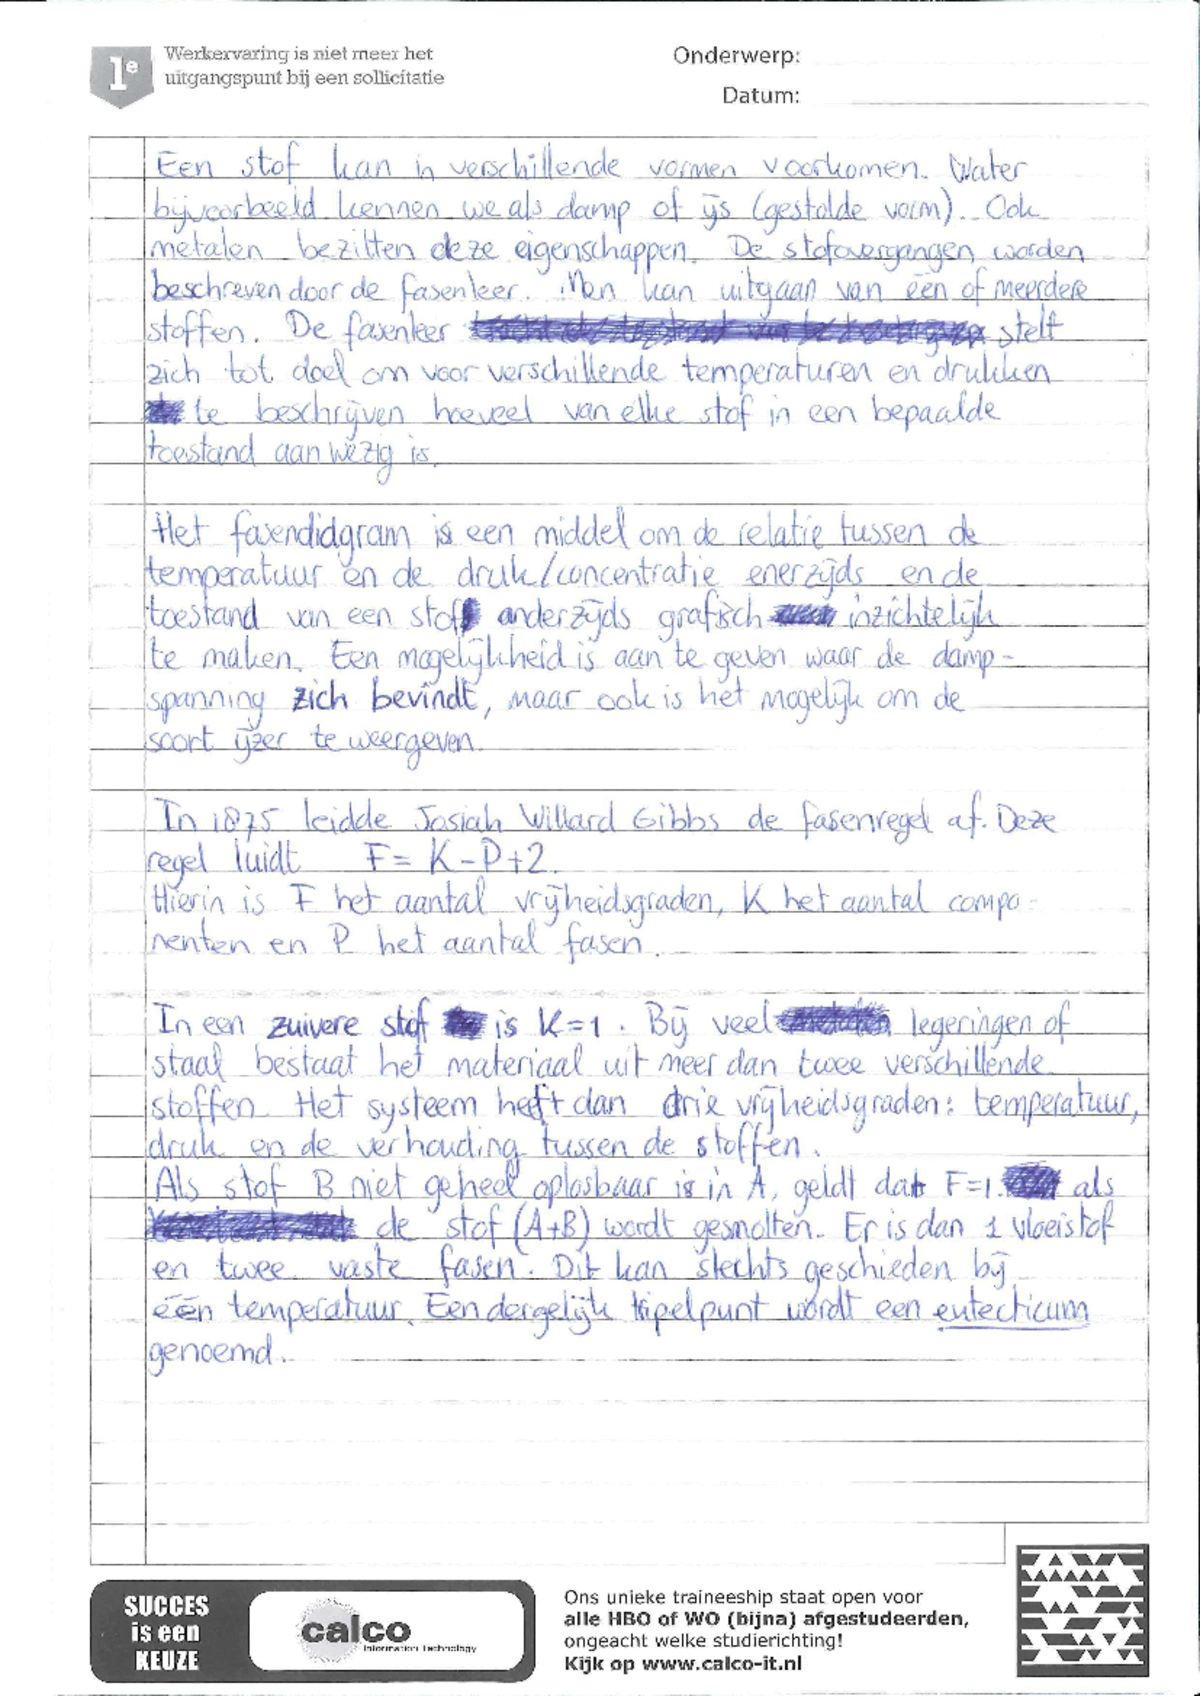 1e
Werkervaring is niet meer het
uitgangspunt bij een sollicitatie
Onderwerp:
Datum:
Een stof kan in verschillende vormen voorkomen. Water
bijvoorbeeld kennen we als damp of ijs (gestolde vorm). Ook
metalen bezitten deze eigenschappen. De stofovergangen worden
beschreven door de fasenleer. Men kan uitgaan van één of meerdere
stoffen. De fasenleer stelt
zich tot doel om voor verschillende temperaturen en drukken
te beschrijven hoeveel van elke stof in een bepaalde
toestand aanwezig is.
Het fasendidgram is een middel om de relatie tussen de
temperatuur en de druk/concentratie enerzijds en de
toestand van een stof anderzijds grafisch inzichtelijk
te maken. Een mogelijkheid is aan te geven waar de damp-
spanning zich bevindt, maar ook is het mogelijk om de
soort ijzer te weergeven.
In 1875 leidde Josiah Willard Gibbs de fasenregel af. Deze
regel luidt F = K-P+2.
Hierin is F het aantal vrijheidsgraden, K het aantal compo-
nenten en P het aantal fasen.
In een zuivere stof is K=1. Bij veel legeringen of
staal bestaat het materiaal uit meer dan twee verschillende
stoffen. Het systeem heeft dan drie vrijheidsgraden: temperatuur,
druk en de verhouding tussen de stoffen.
Als stof B niet geheel oplosbaar is in A, geldt dat F=1 als
de stof (A+B) wordt gesmolten. Er is dan 1 vloeistof
en twee vaste fasen. Dit kan slechts geschieden bij
één temperatuur. Een dergelijk tripelpunt wordt een eutecticum
genoemd.
SUCCES
is een
KEUZE
calco
Information Technology
Ons unieke traineeship staat open voor
alle HBO of WO (bijna) afgestudeerden,
ongeacht welke studierichting!
Kijk op www.calco-it.nl